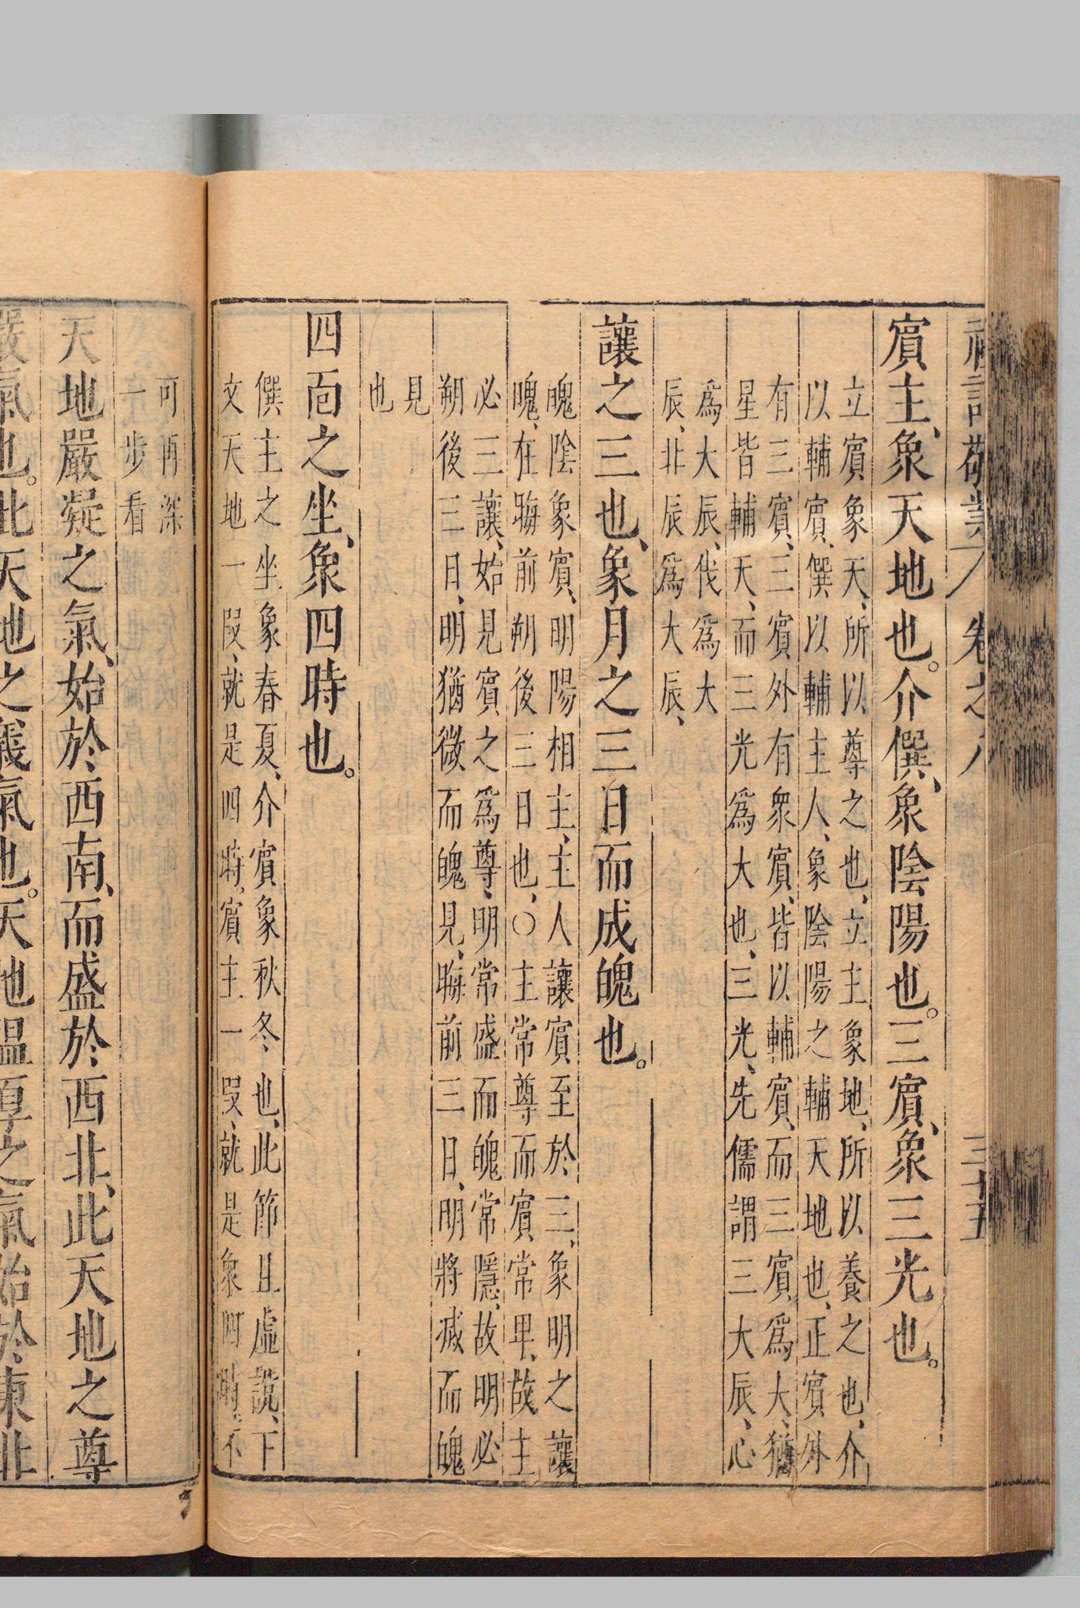 禮記敬業 卷之八 三十五
賔主、象天地也。介僎、象陰陽也。三賔、象三光也。
立賔象天、所以尊之也、立主象地、所以養之也、介
以輔賔、僎以輔主人、象陰陽之輔天地也、正賔外
有三賔、三賔外有衆賔、皆以輔賔、而三賔爲大、猶
星皆輔天、而三光爲大也、三光、先儒謂三大辰、心
爲大辰、伐爲大
辰、北辰爲大辰、
讓之三也、象月之三日而成魄也。
魄陰象賔、明陽相主、主人讓賔至於三、象明之讓
魄、在晦前朔後三日也、○主常尊而賔常卑、故主
必三讓、始見賔之爲尊、明常盛而魄常隱、故明必
朔後三日、明猶微而魄見、晦前三日、明將减而魄
見
也
四面之坐、象四時也。
僎主之坐象春夏、介賔象秋冬也、此節且虛說、下
文天地一叚、就是四時、賔主一叚、就是象四時、不
可再深
一步看
天地嚴凝之氣、始於西南、而盛於西北、此天地之尊
嚴氣也。此天地之義氣也。天地溫厚之氣、始於東北